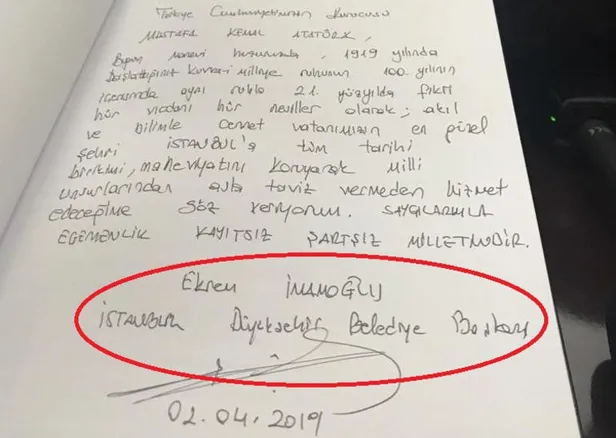 Türkiye Cumhuriyetinin Kurucusu
MUSTAFA KEMAL ATATÜRK,
Bugün manevi huzurunda, 1919 yılında
başlattığınız Kuvay-i Milliye ruhunun 100. yılının
içerisinde aynı ruhla 21. yüzyılda fikri
hür vicdanı hür nesiller olarak; akıl
ve bilimle Cennet vatanımızın en güzel
şehri İSTANBUL'a tüm tarihi
birikimi, maneviyatını koruyarak Milli
unsurlarından asla taviz vermeden hizmet
edeceğime söz veriyorum. SAYGILARIMLA
EGEMENLİK KAYITSIZ ŞARTSIZ MİLLETİNDİR.
Ekrem İMAMOĞLU
İSTANBUL Büyükşehir Belediye Başkanı
02.04.2019